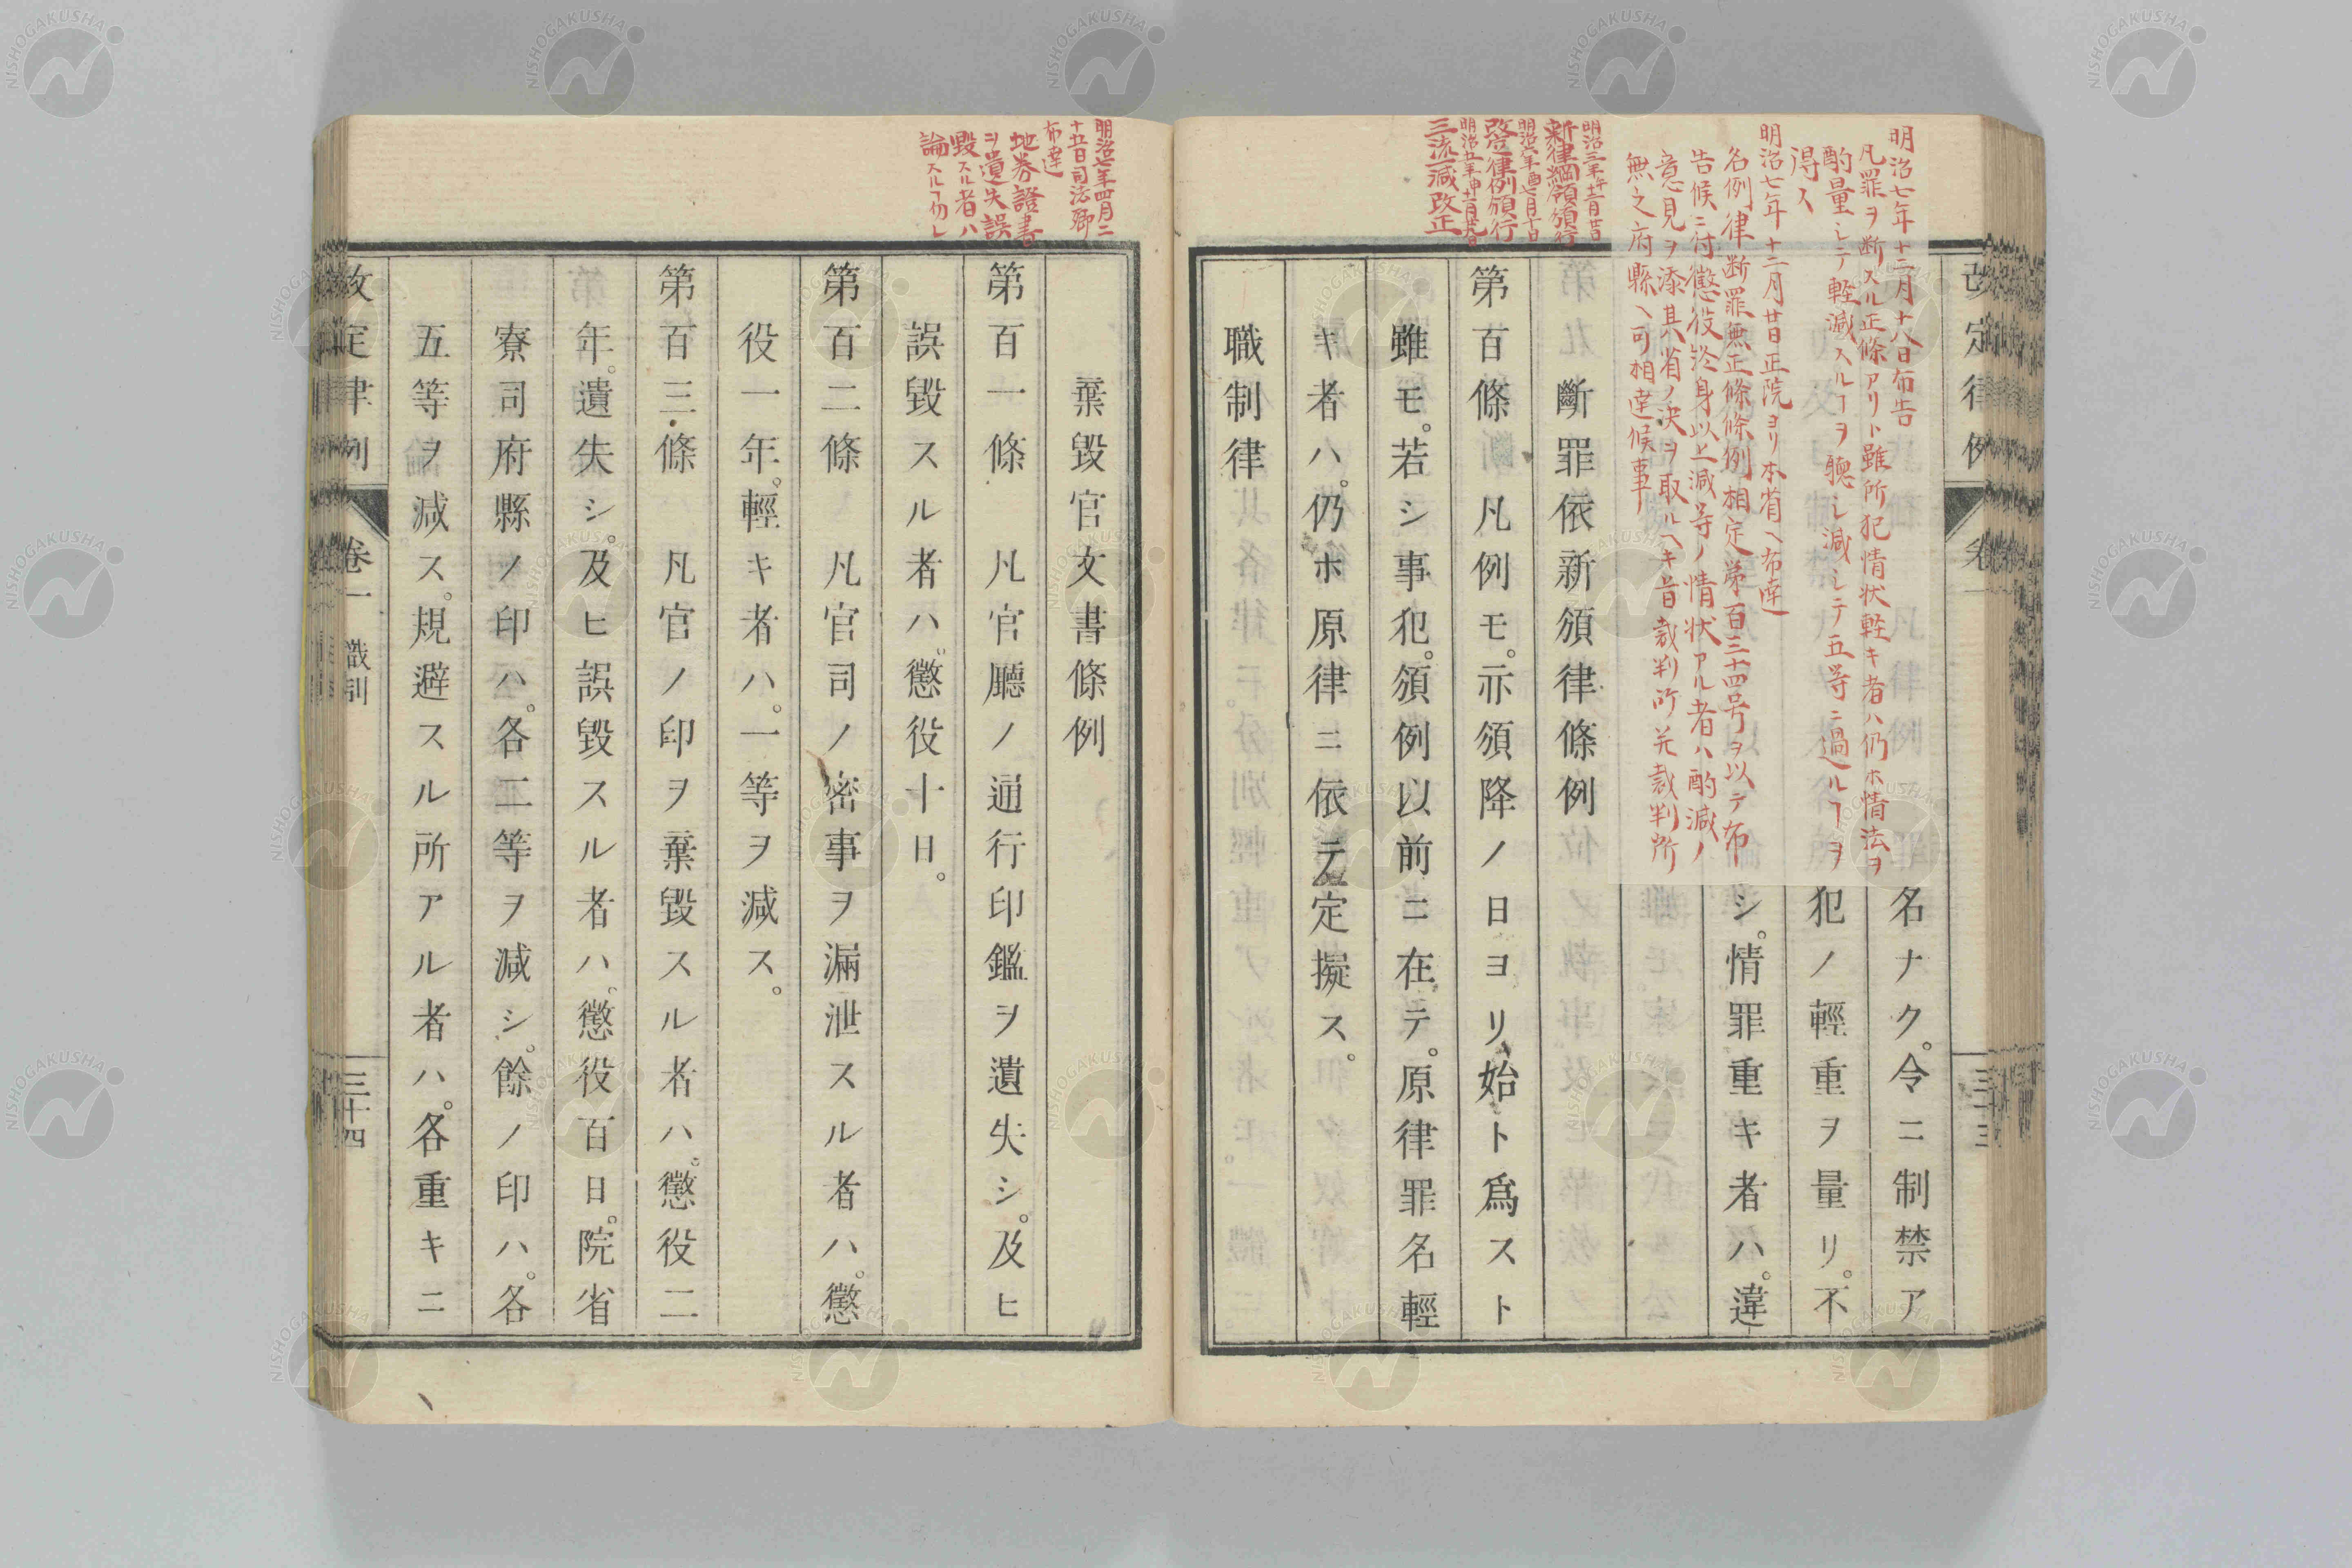 改定律例 卷一
三十三
明治七年十二月十八日布告
凡罪ヲ断スル正條アリト雖所犯情状軽キ者ハ仍ホ情法ヲ
酌量シテ軽減スルヿヲ聴シ減シテ五等ニ過ルヿヲ
得ス
明治七年十二月廿日正院ヨリ本省ヘ布達
名例律断罪無正條條例相定第百三十四号ヲ以テ布
告候ニ付懲役終身以上減等ノ情状アル者ハ酌減ノ
意見ヲ添其省ノ決ヲ取ルヘキ旨裁判所并裁判所
無之府縣ヘ可相達候事
名ナク。令ニ制禁ア
犯ノ輕重ヲ量リ。不
シ。情罪重キ者ハ。違
明治三年
新律綱領頒行
改定律例頒行
三流減改正
斷罪依新頒律條例
第百條 凡例モ。亦頒降ノ日ヨリ。始ト爲スト
雖モ。若シ事犯。頒例以前ニ在テ。原律罪名輕
キ者ハ。仍ホ原律ニ依テ定擬ス。
職制律
明治七年四月二
十五日司法卿
布達
地券證書
ヲ遺失誤
毀スル者ハ
論スルヿ勿レ
棄毀官文書條例
第百一條 凡官廳ノ通行印鑑ヲ遺失シ。及ヒ
誤毀スル者ハ。懲役十日。
第百二條 凡官司ノ密事ヲ漏泄スル者ハ。懲
役一年。輕キ者ハ。一等ヲ減ス。
第百三條 凡官ノ印ヲ棄毀スル者ハ。懲役二
年。遺失シ。及ヒ誤毀スル者ハ。懲役百日。院省
寮司府縣ノ印ハ。各二等ヲ減シ。餘ノ印ハ。各
五等ヲ減ス。規避スル所アル者ハ。各重キニ
改定律例 卷一 職制
三十四
NISHOGAKUSHA